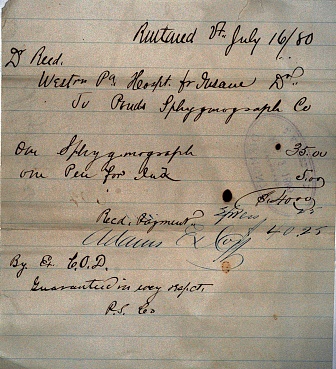 Rutland Vt July 16/80
Dr Reed.
Westrn Pa Hospt. for Insane Dr
To Ponds Sphygmograph Co
One Sphygmograph 35.00
one Pen for Ink 5.00
$ 40.00
Express 25
Recd. Payment $ 40.25
Adams Ex Co
By Ex C.O.D.
Guaranteed in evey respct.
P.S. Co